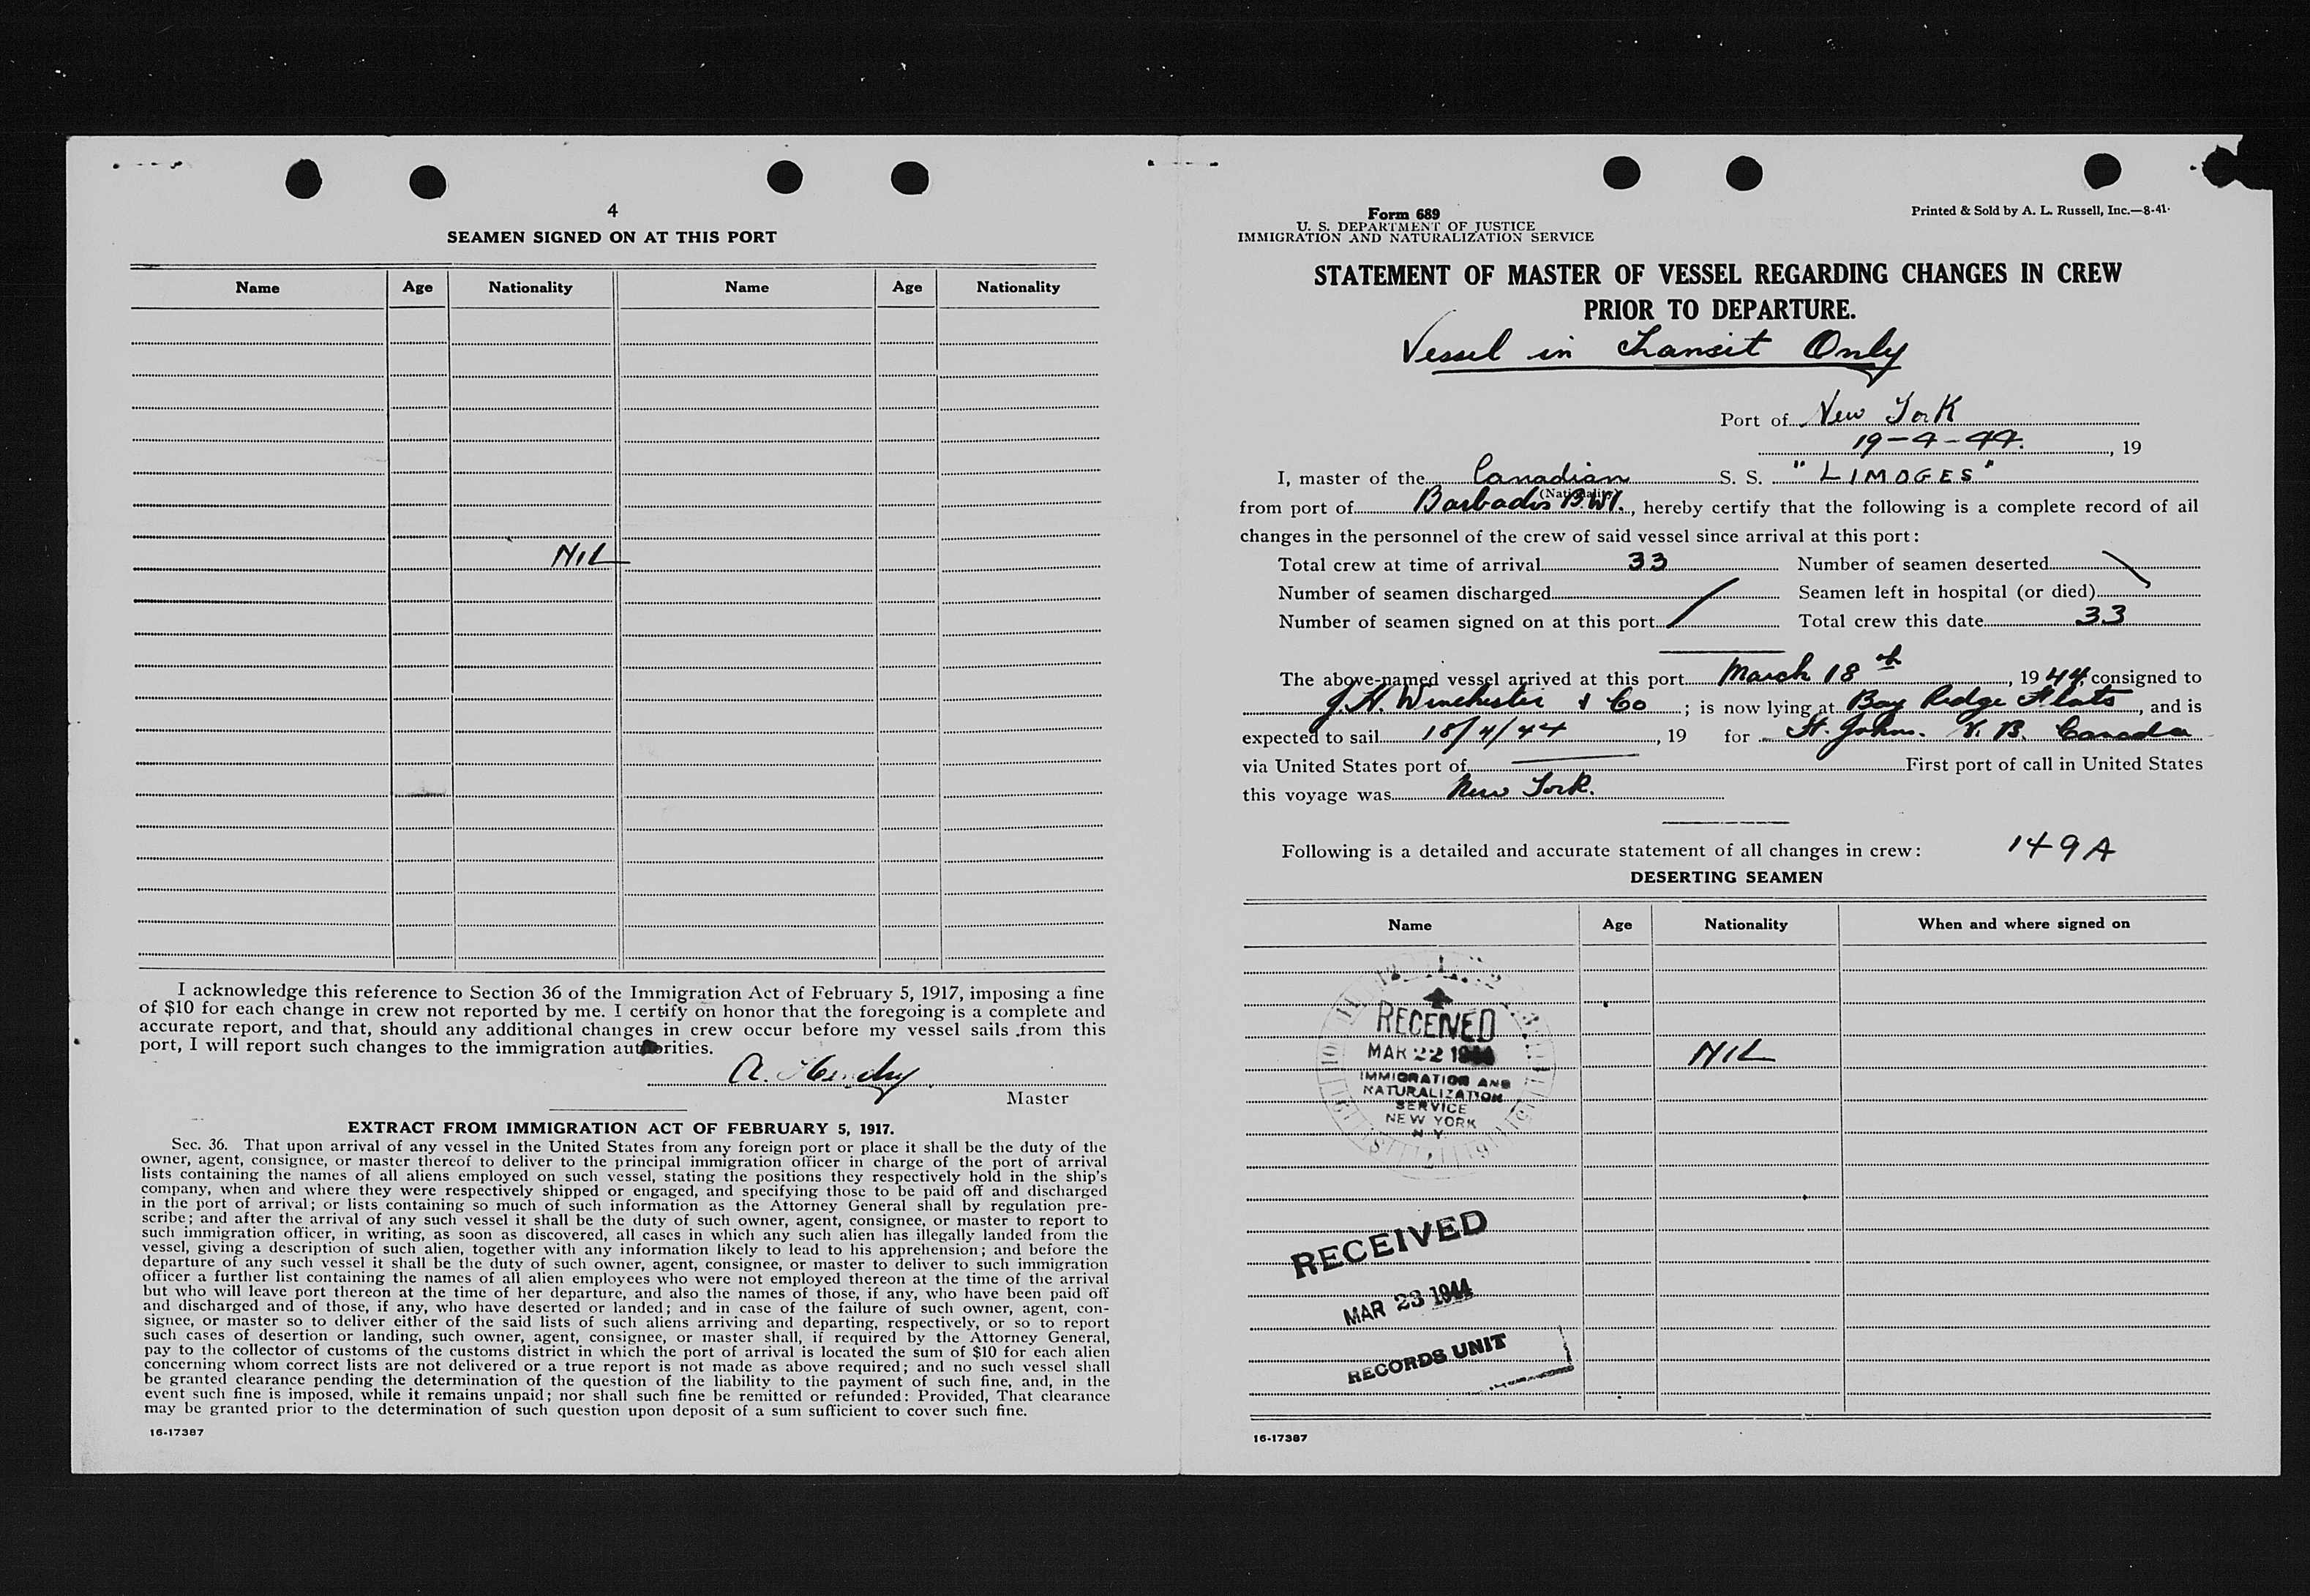 4
SEAMEN SIGNED ON AT THIS PORT
Name Age Nationality Name Age Nationality
NIL
I acknowledge this reference to Section 36 of the Immigration Act of February 5, 1917, imposing a fine
of $10 for each change in crew not reported by me. I certify on honor that the foregoing is a complete and
accurate report, and that, should any additional changes in crew occur before my vessel sails from this
port, I will report such changes to the immigration authorities.
A.
Master
EXTRACT FROM IMMIGRATION ACT OF FEBRUARY 5, 1917.
Sec. 36. That upon arrival of any vessel in the United States from any foreign port or place it shall be the duty of the
owner, agent, consignee, or master thereof to deliver to the principal immigration officer in charge of the port of arrival
lists containing the names of all aliens employed on such vessel, stating the positions they respectively hold in the ship's
company, when and where they were respectively shipped or engaged, and specifying those to be paid off and discharged
in the port of arrival; or lists containing so much of such information as the Attorney General shall by regulation pre-
scribe; and after the arrival of any such vessel it shall be the duty of such owner, agent, consignee, or master to report to
such immigration officer, in writing, as soon as discovered, all cases in which any such alien has illegally landed from the
vessel, giving a description of such alien, together with any information likely to lead to his apprehension; and before the
departure of any such vessel it shall be the duty of such owner, agent, consignee, or master to deliver to such immigration
officer a further list containing the names of all alien employees who were not employed thereon at the time of the arrival
but who will leave port thereon at the time of her departure, and also the names of those, if any, who have been paid off
and discharged and of those, if any, who have deserted or landed; and in case of the failure of such owner, agent, con-
signee, or master so to deliver either of the said lists of such aliens arriving and departing, respectively, or so to report
such cases of desertion or landing, such owner, agent, consignee, or master shall, if required by the Attorney General,
pay to the collector of customs of the customs district in which the port of arrival is located the sum of $10 for each alien
concerning whom correct lists are not delivered or a true report is not made as above required; and no such vessel shall
be granted clearance pending the determination of the question of the liability to the payment of such fine, and, in the
event such fine is imposed, while it remains unpaid; nor shall such fine be remitted or refunded: Provided, That clearance
may be granted prior to the determination of such question upon deposit of a sum sufficient to cover such fine.
16-17387
Form 689
U. S. DEPARTMENT OF JUSTICE
IMMIGRATION AND NATURALIZATION SERVICE
Printed & Sold by A. L. Russell, Inc.—8-41.
STATEMENT OF MASTER OF VESSEL REGARDING CHANGES IN CREW
PRIOR TO DEPARTURE.
Vessel in Transit Only
Port of New York
19-4-44. , 19
I, master of the Canadian S. S. "LIMOGES"
(Nationality)
from port of Barbados B.W.I., hereby certify that the following is a complete record of all
changes in the personnel of the crew of said vessel since arrival at this port:
Total crew at time of arrival 33 Number of seamen deserted
Number of seamen discharged Seamen left in hospital (or died)
Number of seamen signed on at this port Total crew this date 33
The above-named vessel arrived at this port March 18th, 1944, consigned to
J. H. Winchester & Co ; is now lying at Bay Ridge Flats, and is
expected to sail 18/4/44, 19 for St. Johns. N. B. Canada
via United States port of First port of call in United States
this voyage was New York.
Following is a detailed and accurate statement of all changes in crew: 149A
DESERTING SEAMEN
Name Age Nationality When and where signed on
RECEIVED
MAR 22 1944
IMMIGRATION AND
NATURALIZATION
SERVICE
NEW YORK
N. Y.
NIL
RECEIVED
MAR 23 1944
RECORDS UNIT
16-17387